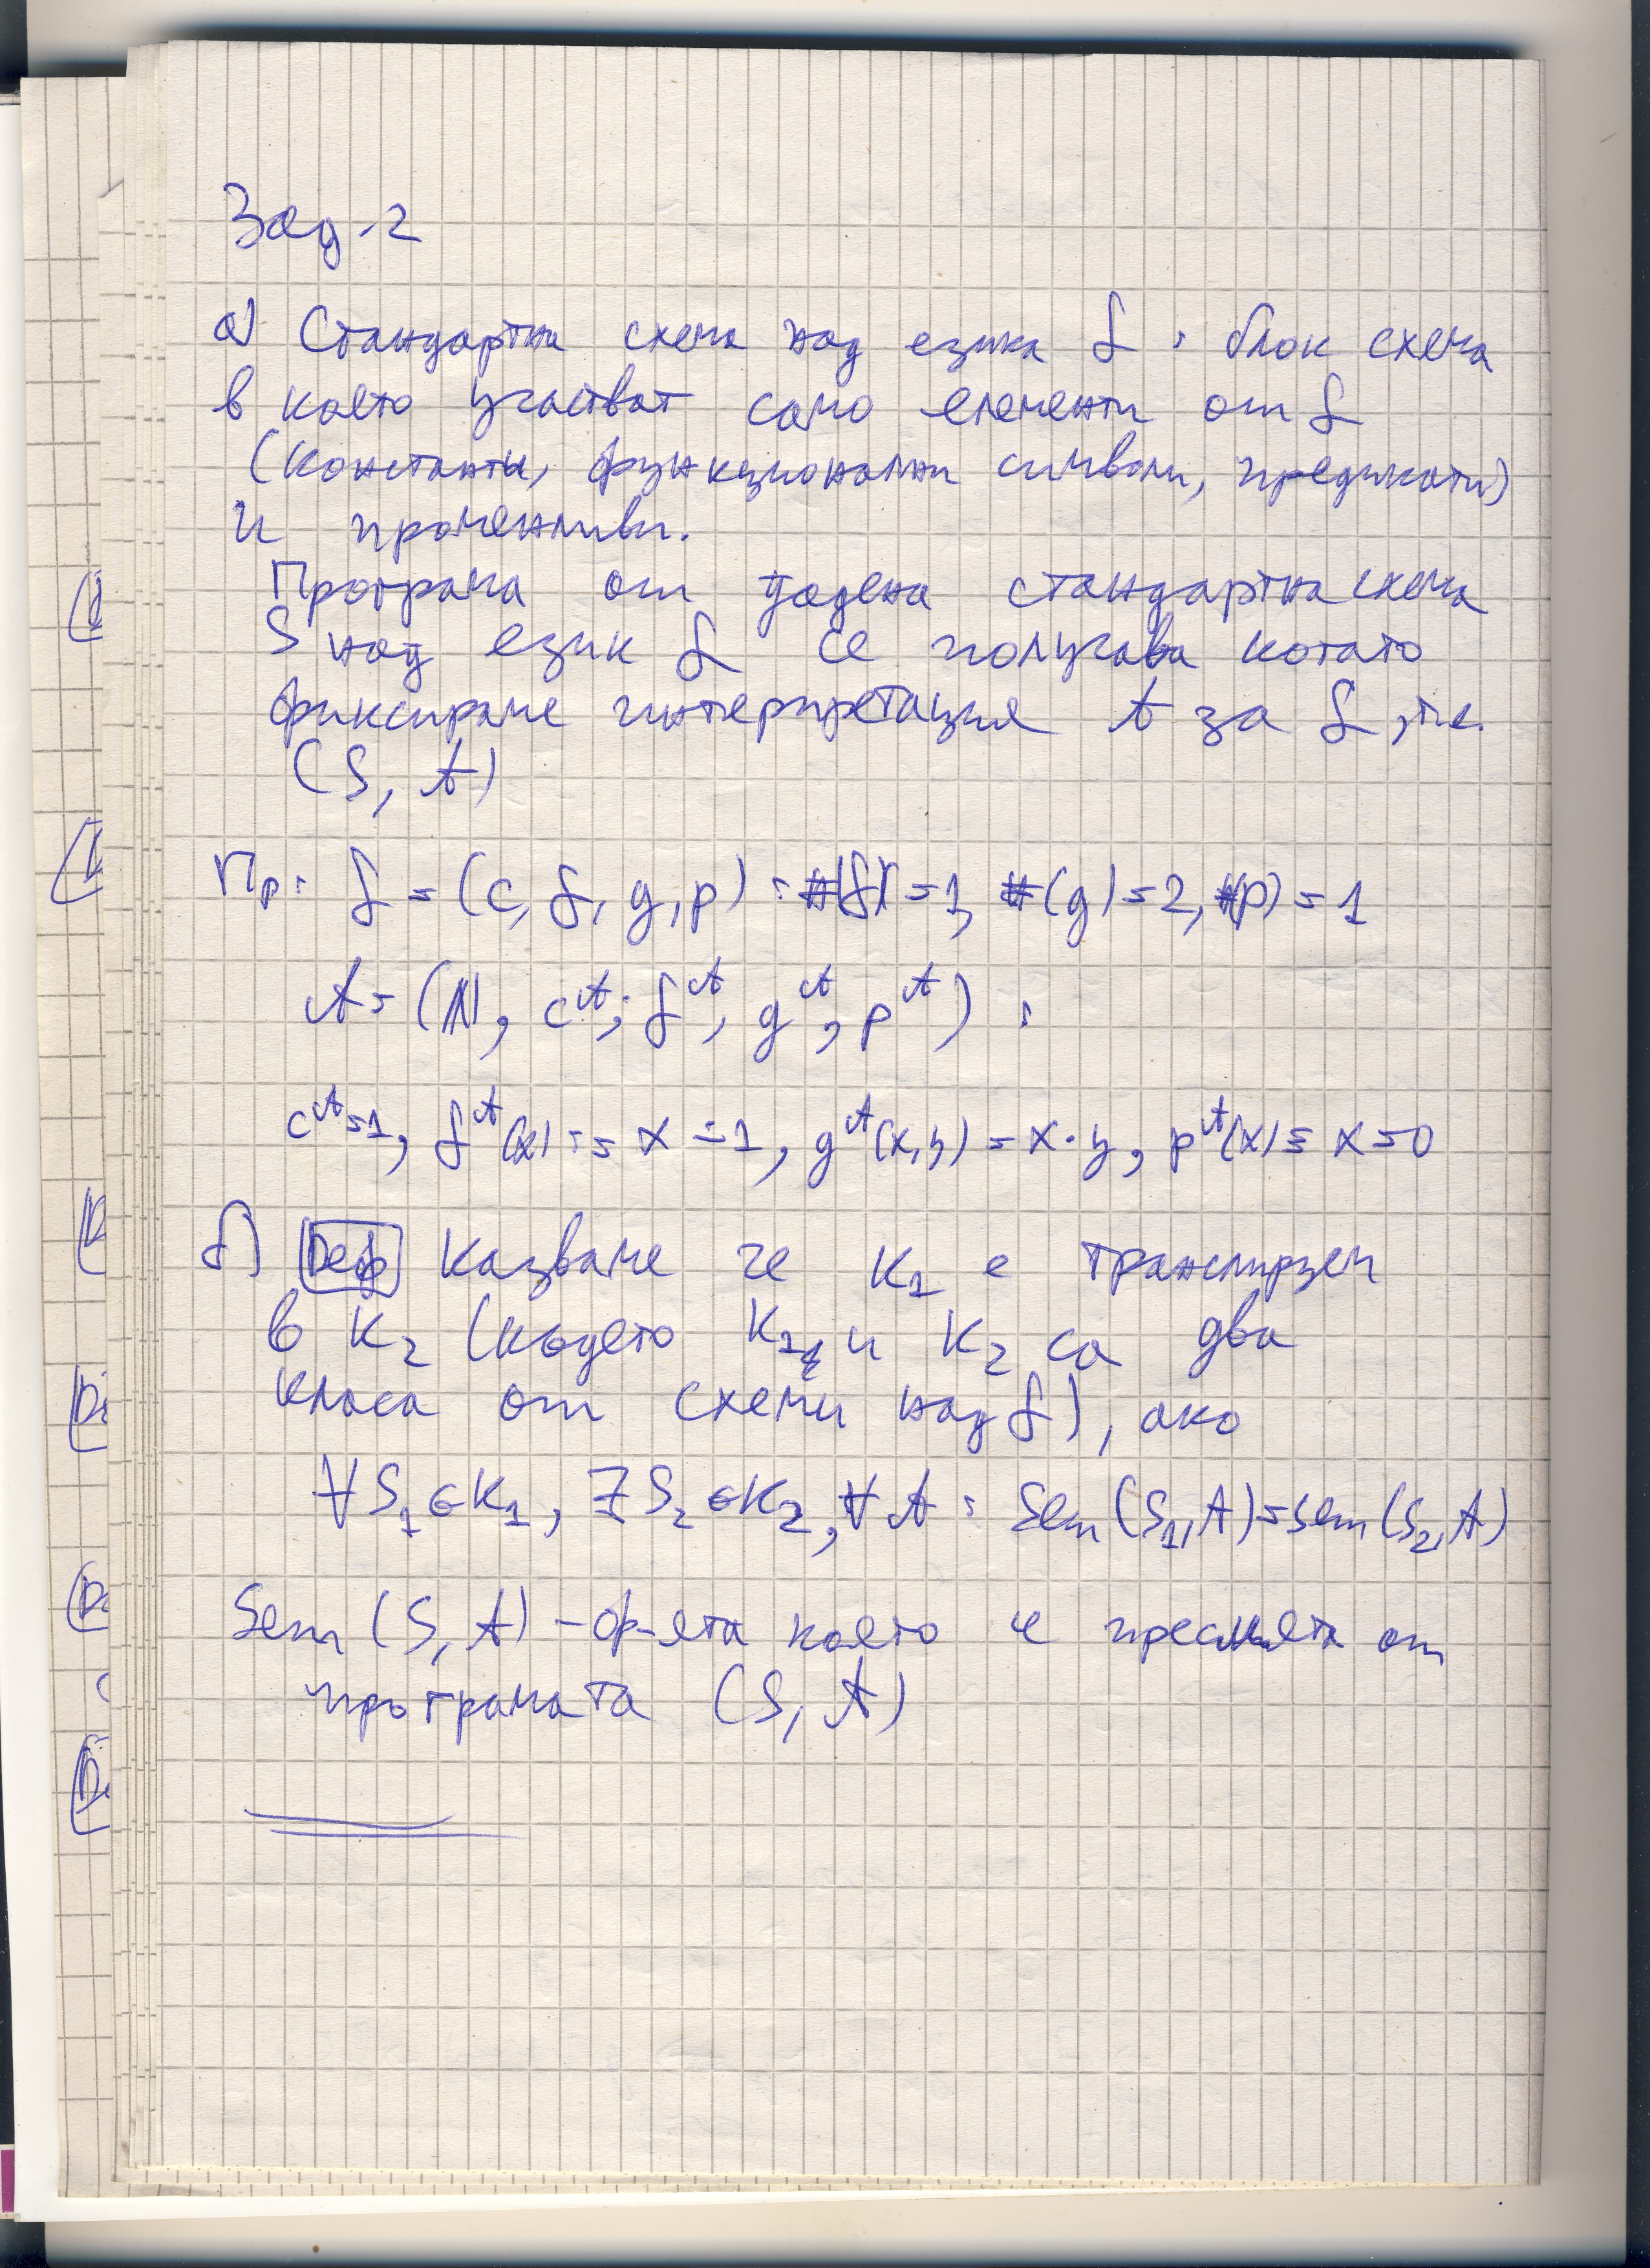 Зад. 2
а) Стандартна схема над езика L : блок схема
в която участват само елементи от L
(константи, функционални символи, предикати)
и променливи.
Програма от дадена стандартна схема
S над език L се получава когато
фиксираме интерпретация A за L, т.е.
(S, A)
Пр: L = (c, f, g, p) : #(f) = 1, #(g) = 2, #(p) = 1
A = (ℕ, c^A; f^A, g^A, p^A) :
c^A = 1, f^A(x) := x ∸ 1, g^A(x,y) = x · y, p^A(x) ≡ x = 0
б) Деф Казваме че K₁ е транслируем
в K₂ (където K₁ и K₂ са два
класа от схеми над L), ако
∀ S₁ ∈ K₁, ∃ S₂ ∈ K₂, ∀ A : Sem(S₁, A) = Sem(S₂, A)
Sem (S, A) - ф-ята която се пресмята от
програмата (S, A)